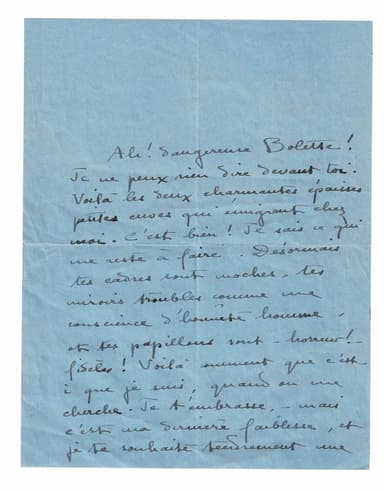 Ah! dangereuse Bolette!
Je ne peux rien dire devant toi.
Voilà les deux charmantes épaisses
petites cuves qui émigrent chez
moi. C'est bien! Je sais ce qui
me reste à faire. Désormais
tes cadres sont moches, tes
miroirs troubles comme une
conscience d'honnête homme,
et tes papillons sont – horreur! –
ficelés! Voilà comment que c'est-
i que je suis, quand on me
cherche. Je t'embrasse, – mais
c'est ma dernière faiblesse, et
je te souhaite tendrement une